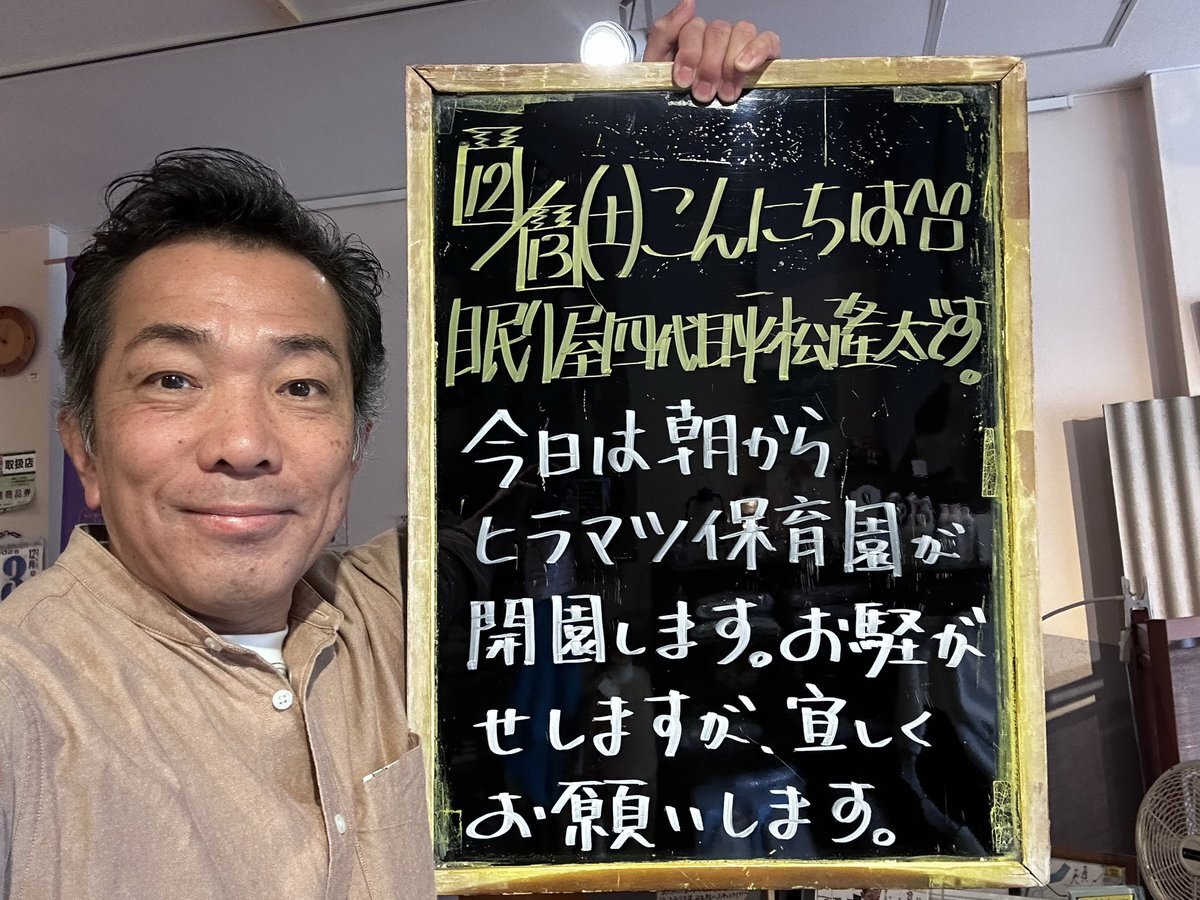 12/13(土)こんにちは
眠り屋四代目平松隆太です。
今日は朝から
ヒラマツ保育園が
開園します。お騒が
せしますが、宜しく
お願いします。
取扱店
商品券
12
月
3